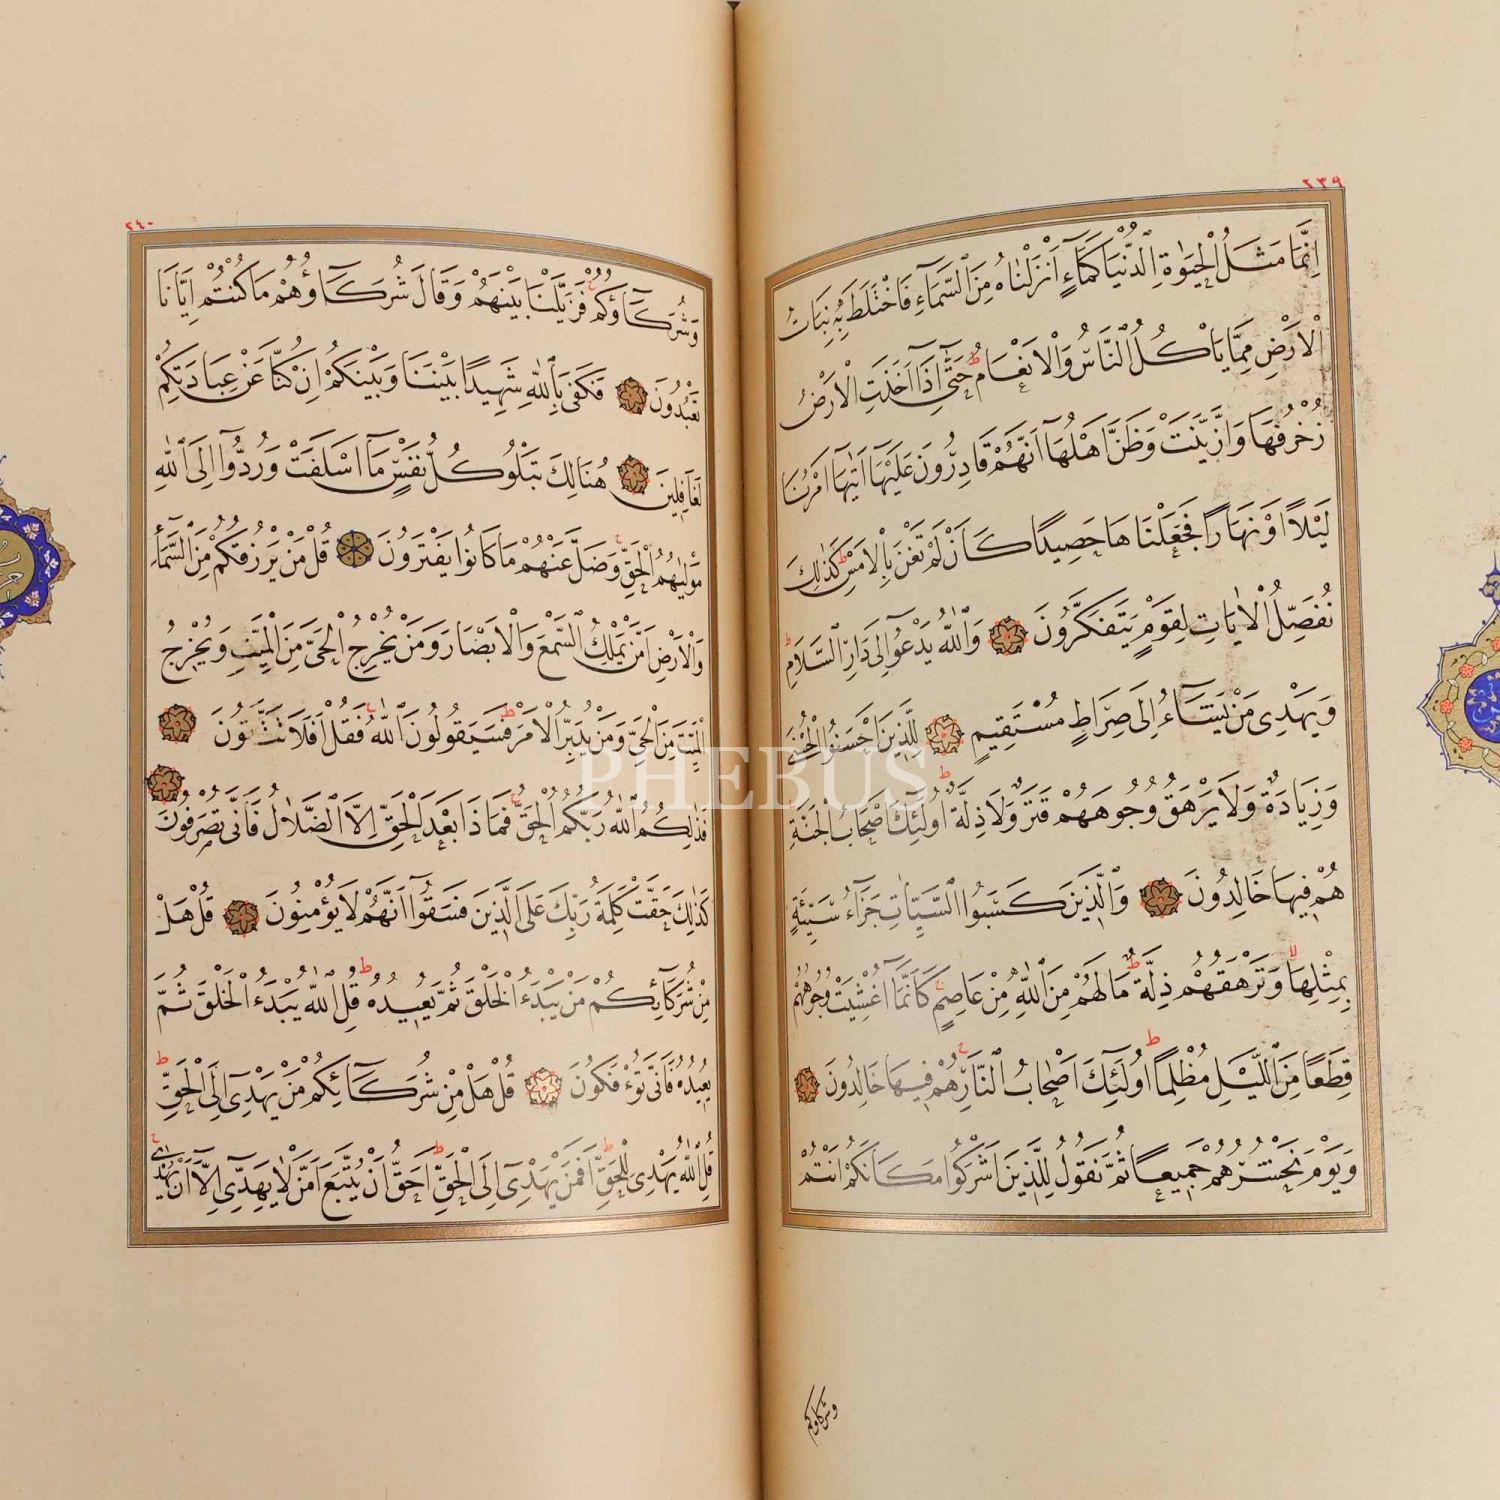 ٢٣٩
اِنَّمَا مَثَلُ الْحَيٰوةِ الدُّنْيَا كَمَاۤءٍ اَنْزَلْنَاهُ مِنَ السَّمَاۤءِ فَاخْتَلَطَ بِهٖ نَبَاتُ
الْاَرْضِ مِمَّا يَاْكُلُ النَّاسُ وَالْاَنْعَامُ ط حَتّٰىۤ اِذَاۤ اَخَذَتِ الْاَرْضُ
زُخْرُفَهَا وَازَّيَّنَتْ وَظَنَّ اَهْلُهَاۤ اَنَّهُمْ قَادِرُونَ عَلَيْهَاۤ اَتٰيهَاۤ اَمْرُنَا
لَيْلًا اَوْ نَهَارًا فَجَعَلْنَاهَا حَصِيدًا كَاَنْ لَمْ تَغْنَ بِالْاَمْسِ ط كَذٰلِكَ
نُفَصِّلُ الْاٰيَاتِ لِقَوْمٍ يَتَفَكَّرُونَ وَاللّٰهُ يَدْعُوۤا اِلٰى دَارِ السَّلَامِ ط
وَيَهْدِى مَنْ يَشَاۤءُ اِلٰى صِرَاطٍ مُسْتَقِيمٍ لِلَّذِينَ اَحْسَنُوا الْحُسْنٰى
وَزِيَادَةٌ ط وَلَا يَرْهَقُ وُجُوهَهُمْ قَتَرٌ وَلَا ذِلَّةٌ ط اُولٰۤئِكَ اَصْحَابُ الْجَنَّةِ
هُمْ فِيهَا خَالِدُونَ وَالَّذِينَ كَسَبُوا السَّيِّاٰتِ جَزَاۤءُ سَيِّئَةٍ
بِمِثْلِهَا لا وَتَرْهَقُهُمْ ذِلَّةٌ ط مَا لَهُمْ مِنَ اللّٰهِ مِنْ عَاصِمٍ ج كَاَنَّمَاۤ اُغْشِيَتْ وُجُوهُهُمْ
قِطَعًا مِنَ الَّيْلِ مُظْلِمًا ط اُولٰۤئِكَ اَصْحَابُ النَّارِ ج هُمْ فِيهَا خَالِدُونَ
وَيَوْمَ نَحْشُرُهُمْ جَمِيعًا ثُمَّ نَقُولُ لِلَّذِينَ اَشْرَكُوا مَكَانَكُمْ اَنْتُمْ
وشركاؤكم
٢٤٠
وَشُرَكَاۤؤُكُمْ ج فَزَيَّلْنَا بَيْنَهُمْ وَقَالَ شُرَكَاۤؤُهُمْ مَا كُنْتُمْ اِيَّانَا
تَعْبُدُونَ فَكَفٰى بِاللّٰهِ شَهِيدًا بَيْنَنَا وَبَيْنَكُمْ اِنْ كُنَّا عَنْ عِبَادَتِكُمْ
لَغَافِلِينَ هُنَالِكَ تَبْلُوا كُلُّ نَفْسٍ مَاۤ اَسْلَفَتْ وَرُدُّوۤا اِلَى اللّٰهِ
مَوْلٰيهُمُ الْحَقِّ ج وَضَلَّ عَنْهُمْ مَا كَانُوا يَفْتَرُونَ قُلْ مَنْ يَرْزُقُكُمْ مِنَ السَّمَاۤءِ
وَالْاَرْضِ اَمَّنْ يَمْلِكُ السَّمْعَ وَالْاَبْصَارَ وَمَنْ يُخْرِجُ الْحَىَّ مِنَ الْمَيِّتِ وَيُخْرِجُ
الْمَيِّتَ مِنَ الْحَىِّ وَمَنْ يُدَبِّرُ الْاَمْرَ ط فَسَيَقُولُونَ اللّٰهُ ج فَقُلْ اَفَلَا تَتَّقُونَ
فَذٰلِكُمُ اللّٰهُ رَبُّكُمُ الْحَقُّ ج فَمَاذَا بَعْدَ الْحَقِّ اِلَّا الضَّلَالُ فَاَنّٰى تُصْرَفُونَ
كَذٰلِكَ حَقَّتْ كَلِمَةُ رَبِّكَ عَلَى الَّذِينَ فَسَقُوۤا اَنَّهُمْ لَا يُؤْمِنُونَ قُلْ هَلْ
مِنْ شُرَكَاۤئِكُمْ مَنْ يَبْدَؤُا الْخَلْقَ ثُمَّ يُعِيدُهُ ط قُلِ اللّٰهُ يَبْدَؤُا الْخَلْقَ ثُمَّ
يُعِيدُهُ فَاَنّٰى تُؤْفَكُونَ قُلْ هَلْ مِنْ شُرَكَاۤئِكُمْ مَنْ يَهْدِىۤ اِلَى الْحَقِّ ط
قُلِ اللّٰهُ يَهْدِى لِلْحَقِّ ط اَفَمَنْ يَهْدِىۤ اِلَى الْحَقِّ اَحَقُّ اَنْ يُتَّبَعَ اَمَّنْ لَا يَهِدِّىۤ اِلَّاۤ اَنْ يُهْدٰى ج
PHEBUS